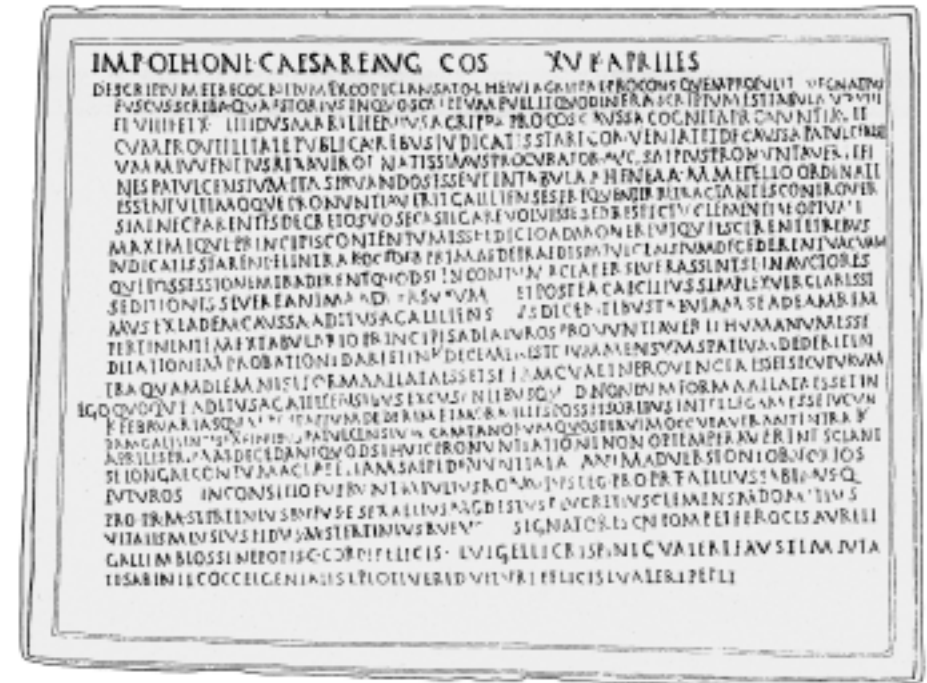 IMP OTHONE CAESARE AVG COS XV K APRILES
DESCRIPTVM ET RECOGNITVM EX CODICE ANSATO L HELVI AGRIPPAE PROCONS QVEM PROTVLIT EGNATIVS
FVSCVS SCRIBA QVAESTORIVS IN QVO SCRIPTVM FVIT IT QVOD INFRA SCRIPTVM EST TABVLA V VIII
ET VIIII ET X III IDVS MART L HELVIVS AGRIPPA PROCOS CAVSSA COGNITA PRONVNTIAVIT
CVM PRO VTILITATE PVBLICA REBVS IVDICATIS STARE CONVENIAT ET DE CAVSSA PATVLCENSI
VM M IVVENTIVS RIXA VIR ORNATISSIMVS PROCVRATOR AVG SAEPIVS PRONVNTIAVERIT FI
NES PATVLCENSIVM ITA SERVANDOS ESSE VT IN TABVLA AHENEA A M METELLO ORDINATI
ESSENT VLTIMOQVE PRONVNTIAVERIT GALILLENSES FREQVENTER RETRACTANTES CONTROVER
SIA NEC PARENTES DECRETO SVO SE CASTIGARE VOLVISSE SED RESPECTV CLEMENTIAE OPTVMI
MAXIMIQVE PRINCIPIS CONTENTVM ESSE EDICTO ADMONERE VT QVIESCERENT ET REBVS
IVDICATIS STARENT ET INTRA K OCTOBR PRIMAS DE PRAEDIS PATVLCENSIVM DECEDERENT VACVAM
QVE POSSESSIONEM TRADERENT QVOD SI IN CONTVMACIA PERSEVERASSENT SE IN AVCTORES
SEDITIONIS SEVERE ANIMADVERSVRVM ET POSTEA CAECILIVS SIMPLEX VIR CLARISSI
MVS EX EADEM CAVSSA ADITVS A GALILLENSIBVS DICENTIBVS TABVLAM SE AD EAM REM
PERTINENTEM EX TABVLARIO PRINCIPIS ADLATVROS PRONVNTIAVERIT HVMANVM ESSE
DILATIONEM PROBATIONI DARI ET IN K DECEMBRES TRIVM MENSVM SPATIVM DEDERIT IN
TRA QVAM DIEM NISI FORMA ALLATA ESSET SE EAM QVAE IN PROVINCIA ESSET SECVTVRVM
EGO QVOQVE ADITVS A GALILLENSIBVS EXCVSANTIBVS QVOD NONDVM FORMA ALLATA ESSET IN
K FEBRVARIAS QVAE P F SPATIVM DEDERIM ET MORAM ILLIS POSSESSORIBVS INTELLEGAM ESSE IVCVN
DAM GALILLENSES EX FINIBVS PATVLCENSIVM CAMPANORVM QVOS PER VIM OCCVPAVERANT INTRA K
APRILES PRIMAS DECEDANT QVOD SI HVIC PRONVNTIATIONI NON OPTEMPERAVERINT SCIANT
SE LONGAE CONTVMACIAE ET IAM SAEPE DENVNTIATA ANIMADVERSIONI OBNOXIOS
FVTVROS IN CONSILIO FVERVNT M IVLIVS ROMVLVS LEG PRO PR T ATILIVS SABINVS Q
PRO PR M STERTINIVS RVFVS F SEX AELIVS MODESTVS P LVCRETIVS CLEMENS M DOMITIVS
VITALIS M LVSIVS FIDVS M STERTINIVS RVFVS SIGNATORES CN POMPEI FEROCIS AVRELI
GALLI M BLOSSI NEPOTIS C CORDI FELICIS L VIGELLI CRISPINI C VALERI FAVSTI M LVTA
TI SABINI L COCCEI GENIALIS L PLOTI VERI D VETVRI FELICIS L VALERI PEPLI